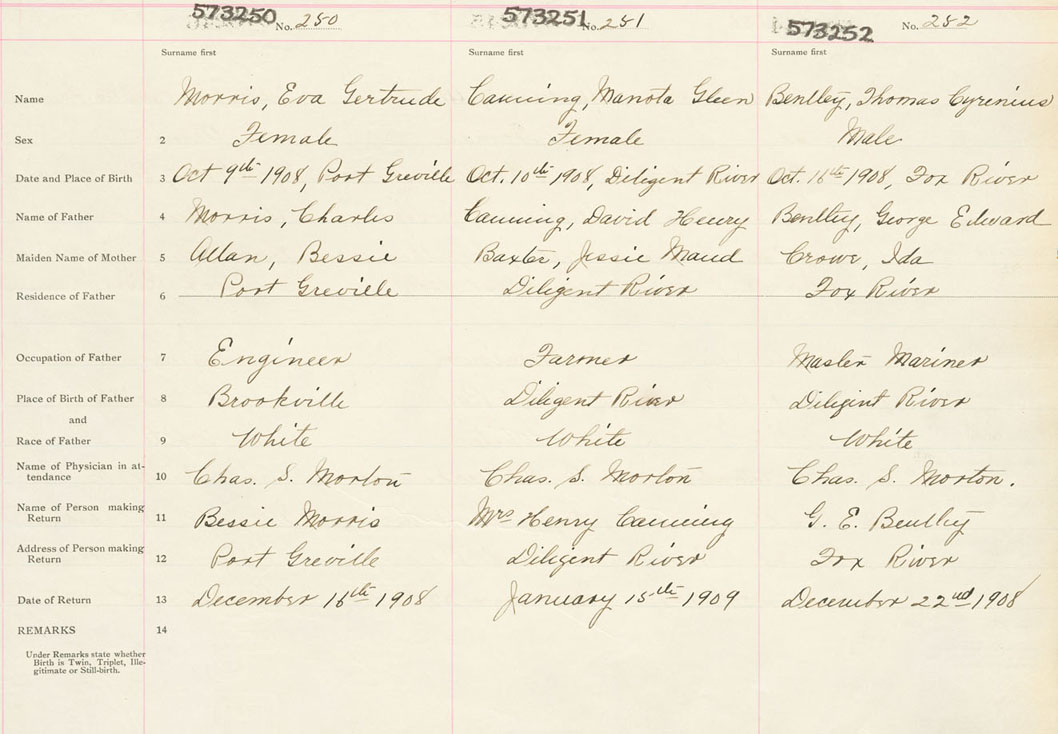 573250 No. 250 573251 No. 251 573252 No. 252
Surname first Surname first Surname first
Name Morris, Eva Gertrude Canning, Manota Gleen Bentley, Thomas Cyrenius
Sex 2 Female Female Male
Date and Place of Birth 3 Oct 9th 1908, Port Greville Oct. 10th 1908, Diligent River Oct. 16th 1908, Fox River
Name of Father 4 Morris, Charles Canning, David Henry Bentley, George Edward
Maiden Name of Mother 5 Allan, Bessie Baxter, Jessie Maud Crowe, Ida
Residence of Father 6 Port Greville Diligent River Fox River
Occupation of Father 7 Engineer Farmer Master Mariner
Place of Birth of Father 8 Brookville Diligent River Diligent River
and
Race of Father 9 White White White
Name of Physician in at-
tendance 10 Chas. S. Morton Chas. S. Morton Chas. S. Morton.
Name of Person making
Return 11 Bessie Morris Mrs Henry Canning G. E. Bentley
Address of Person making
Return 12 Port Greville Diligent River Fox River
Date of Return 13 December 16th 1908 January 15th 1909 December 22nd 1908
REMARKS 14
Under Remarks state whether
Birth is Twin, Triplet, Ille-
gitimate or Still-birth.